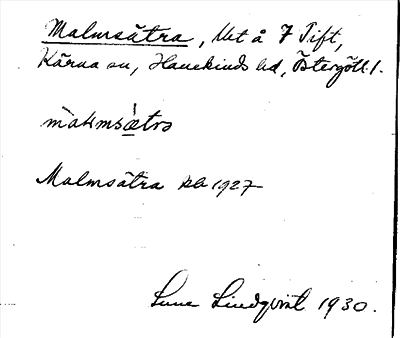 Malmsätra, Ut å 7 Tift,
Kärna sn, Hanekinds hd, Östergötl. l.
màlmsǽtrɔ
Malmsätra kb 1927
Sune Lindqvist 1930.